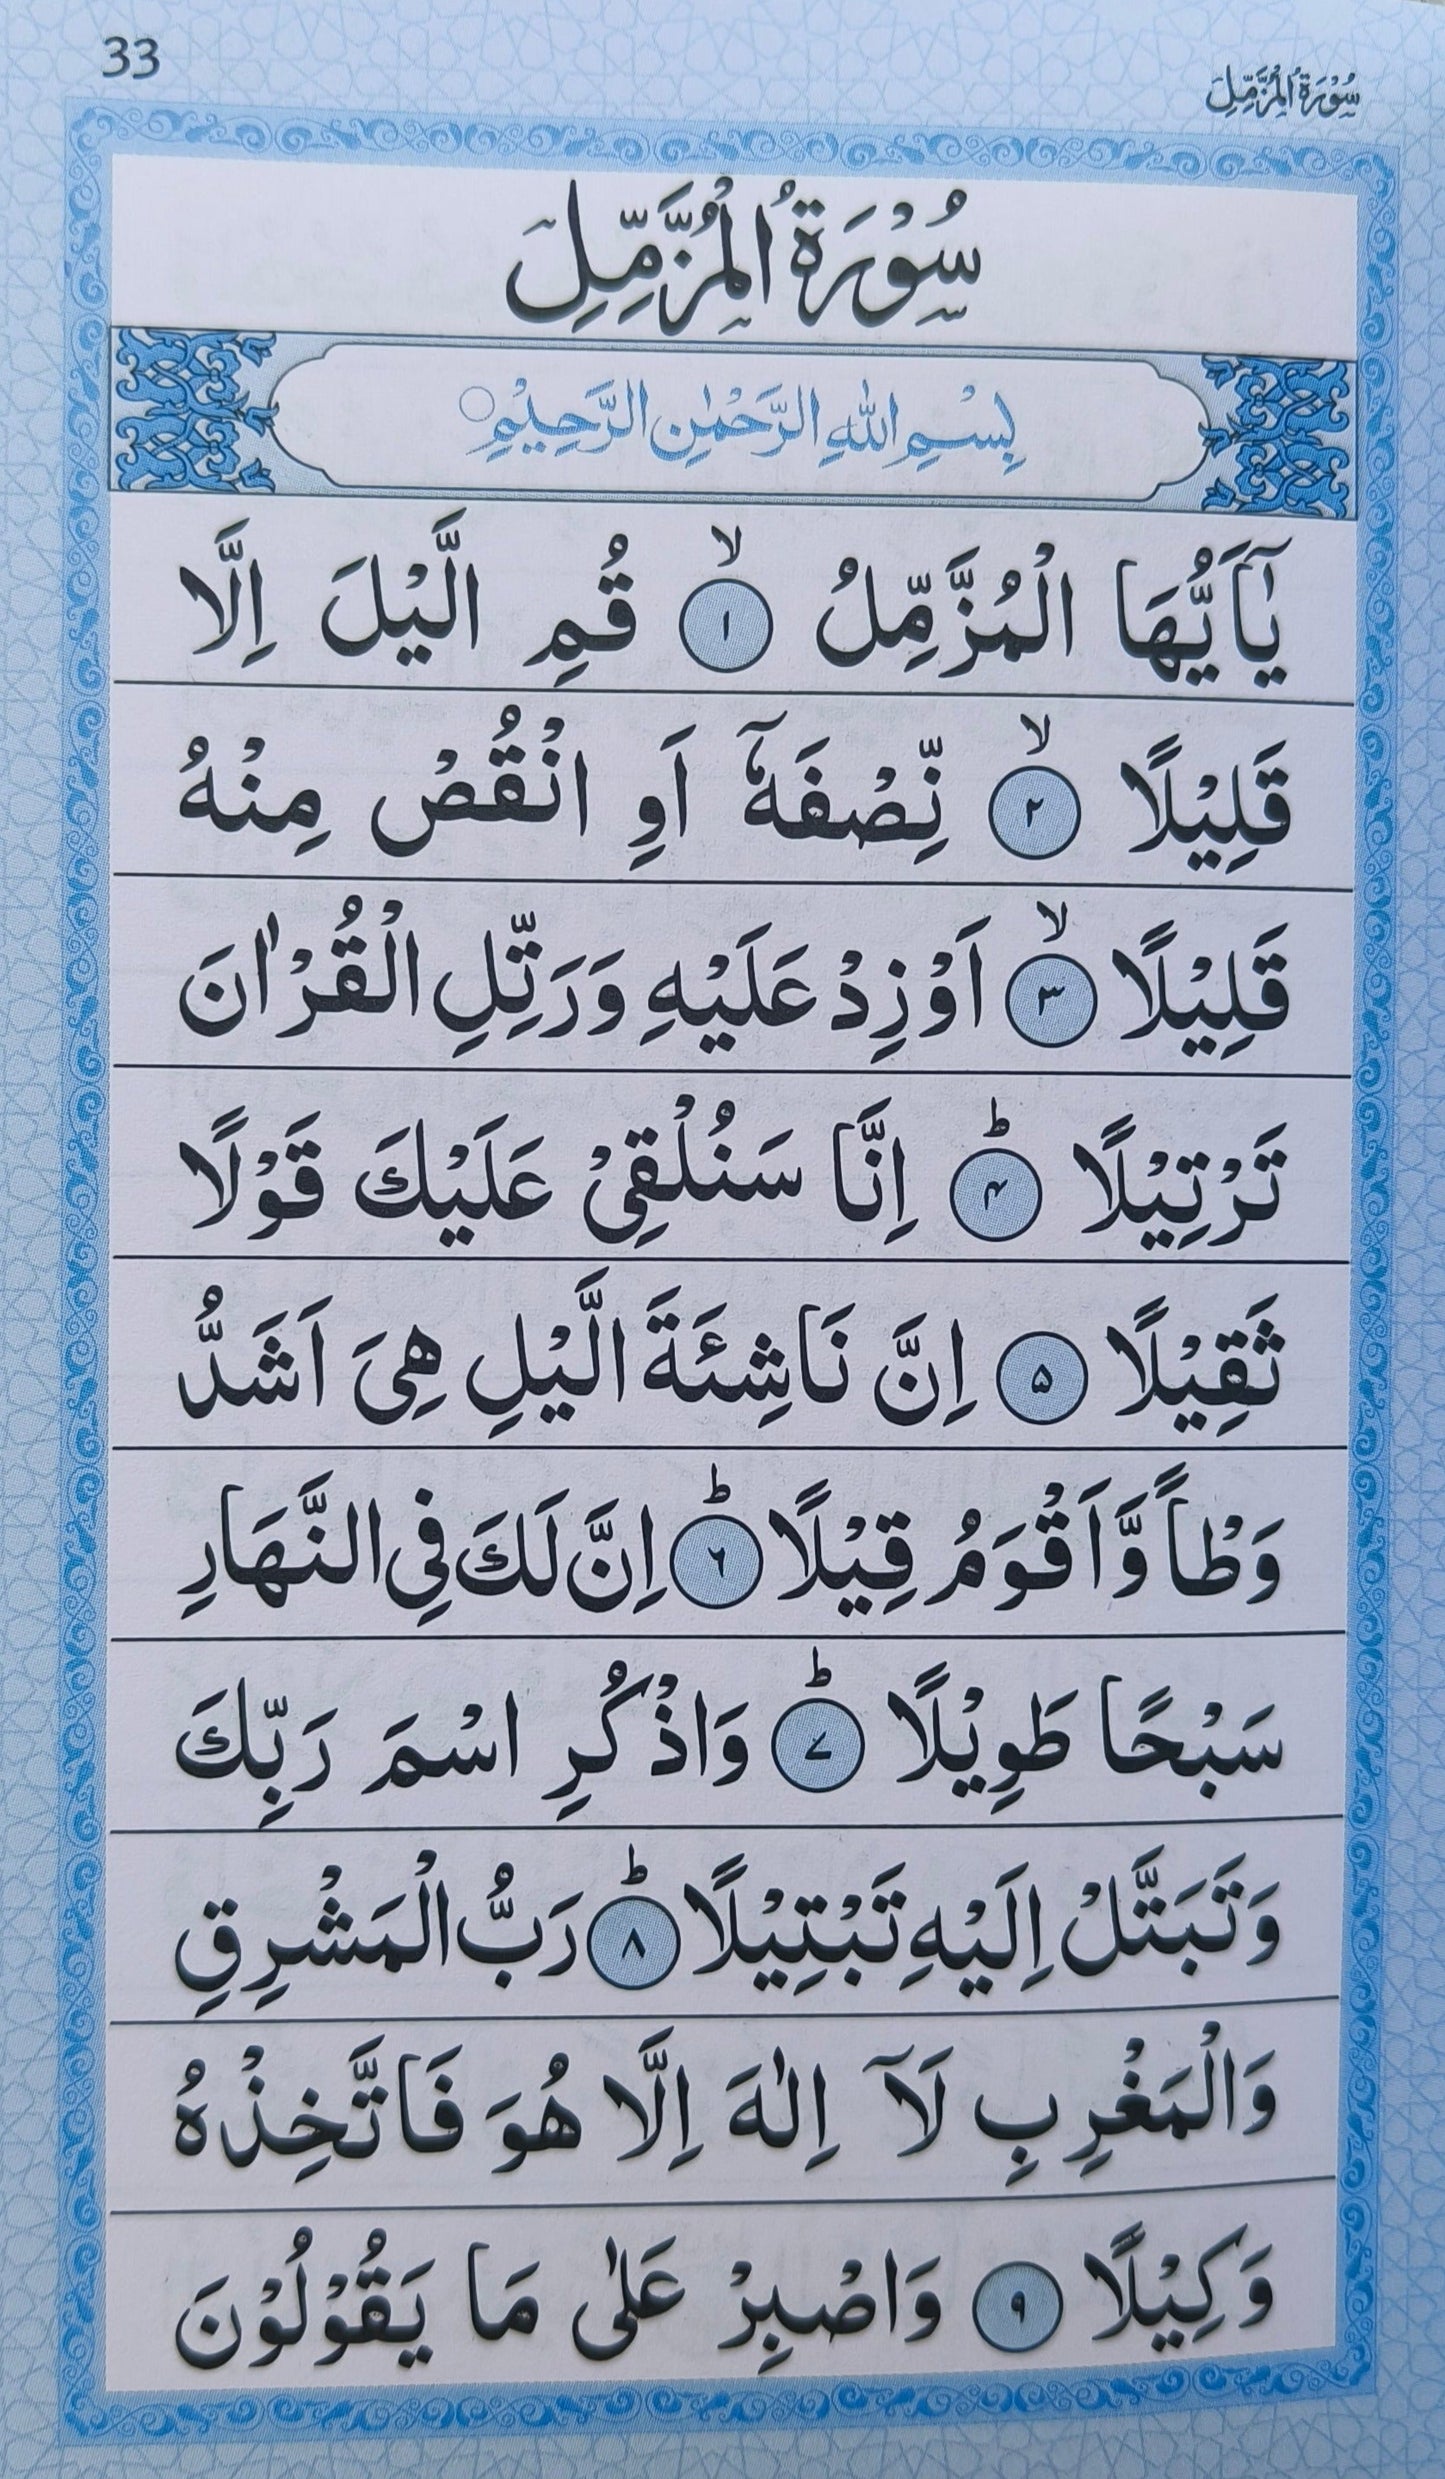 33
سُوْرَةُ الْمُزَّمِّلِ
سُوْرَةُ الْمُزَّمِّلِ
بِسْمِ اللّٰهِ الرَّحْمٰنِ الرَّحِيْمِ○
يٰٓاَيُّهَا الْمُزَّمِّلُ ۙ﴿۱﴾ قُمِ الَّيْلَ اِلَّا
قَلِيْلًا ۙ﴿۲﴾ نِّصْفَهٗٓ اَوِ انْقُصْ مِنْهُ
قَلِيْلًا ۙ﴿۳﴾ اَوْ زِدْ عَلَيْهِ وَرَتِّلِ الْقُرْاٰنَ
تَرْتِيْلًا ؕ﴿۴﴾ اِنَّا سَنُلْقِيْ عَلَيْكَ قَوْلًا
ثَقِيْلًا ﴿۵﴾ اِنَّ نَاشِئَةَ الَّيْلِ هِىَ اَشَدُّ
وَطْاً وَّاَقْوَمُ قِيْلًا ؕ﴿۶﴾ اِنَّ لَكَ فِى النَّهَارِ
سَبْحًا طَوِيْلًا ؕ﴿۷﴾ وَاذْكُرِ اسْمَ رَبِّكَ
وَتَبَتَّلْ اِلَيْهِ تَبْتِيْلًا ؕ﴿۸﴾ رَبُّ الْمَشْرِقِ
وَالْمَغْرِبِ لَآ اِلٰهَ اِلَّا هُوَ فَاتَّخِذْهُ
وَكِيْلًا ﴿۹﴾ وَاصْبِرْ عَلٰى مَا يَقُوْلُوْنَ